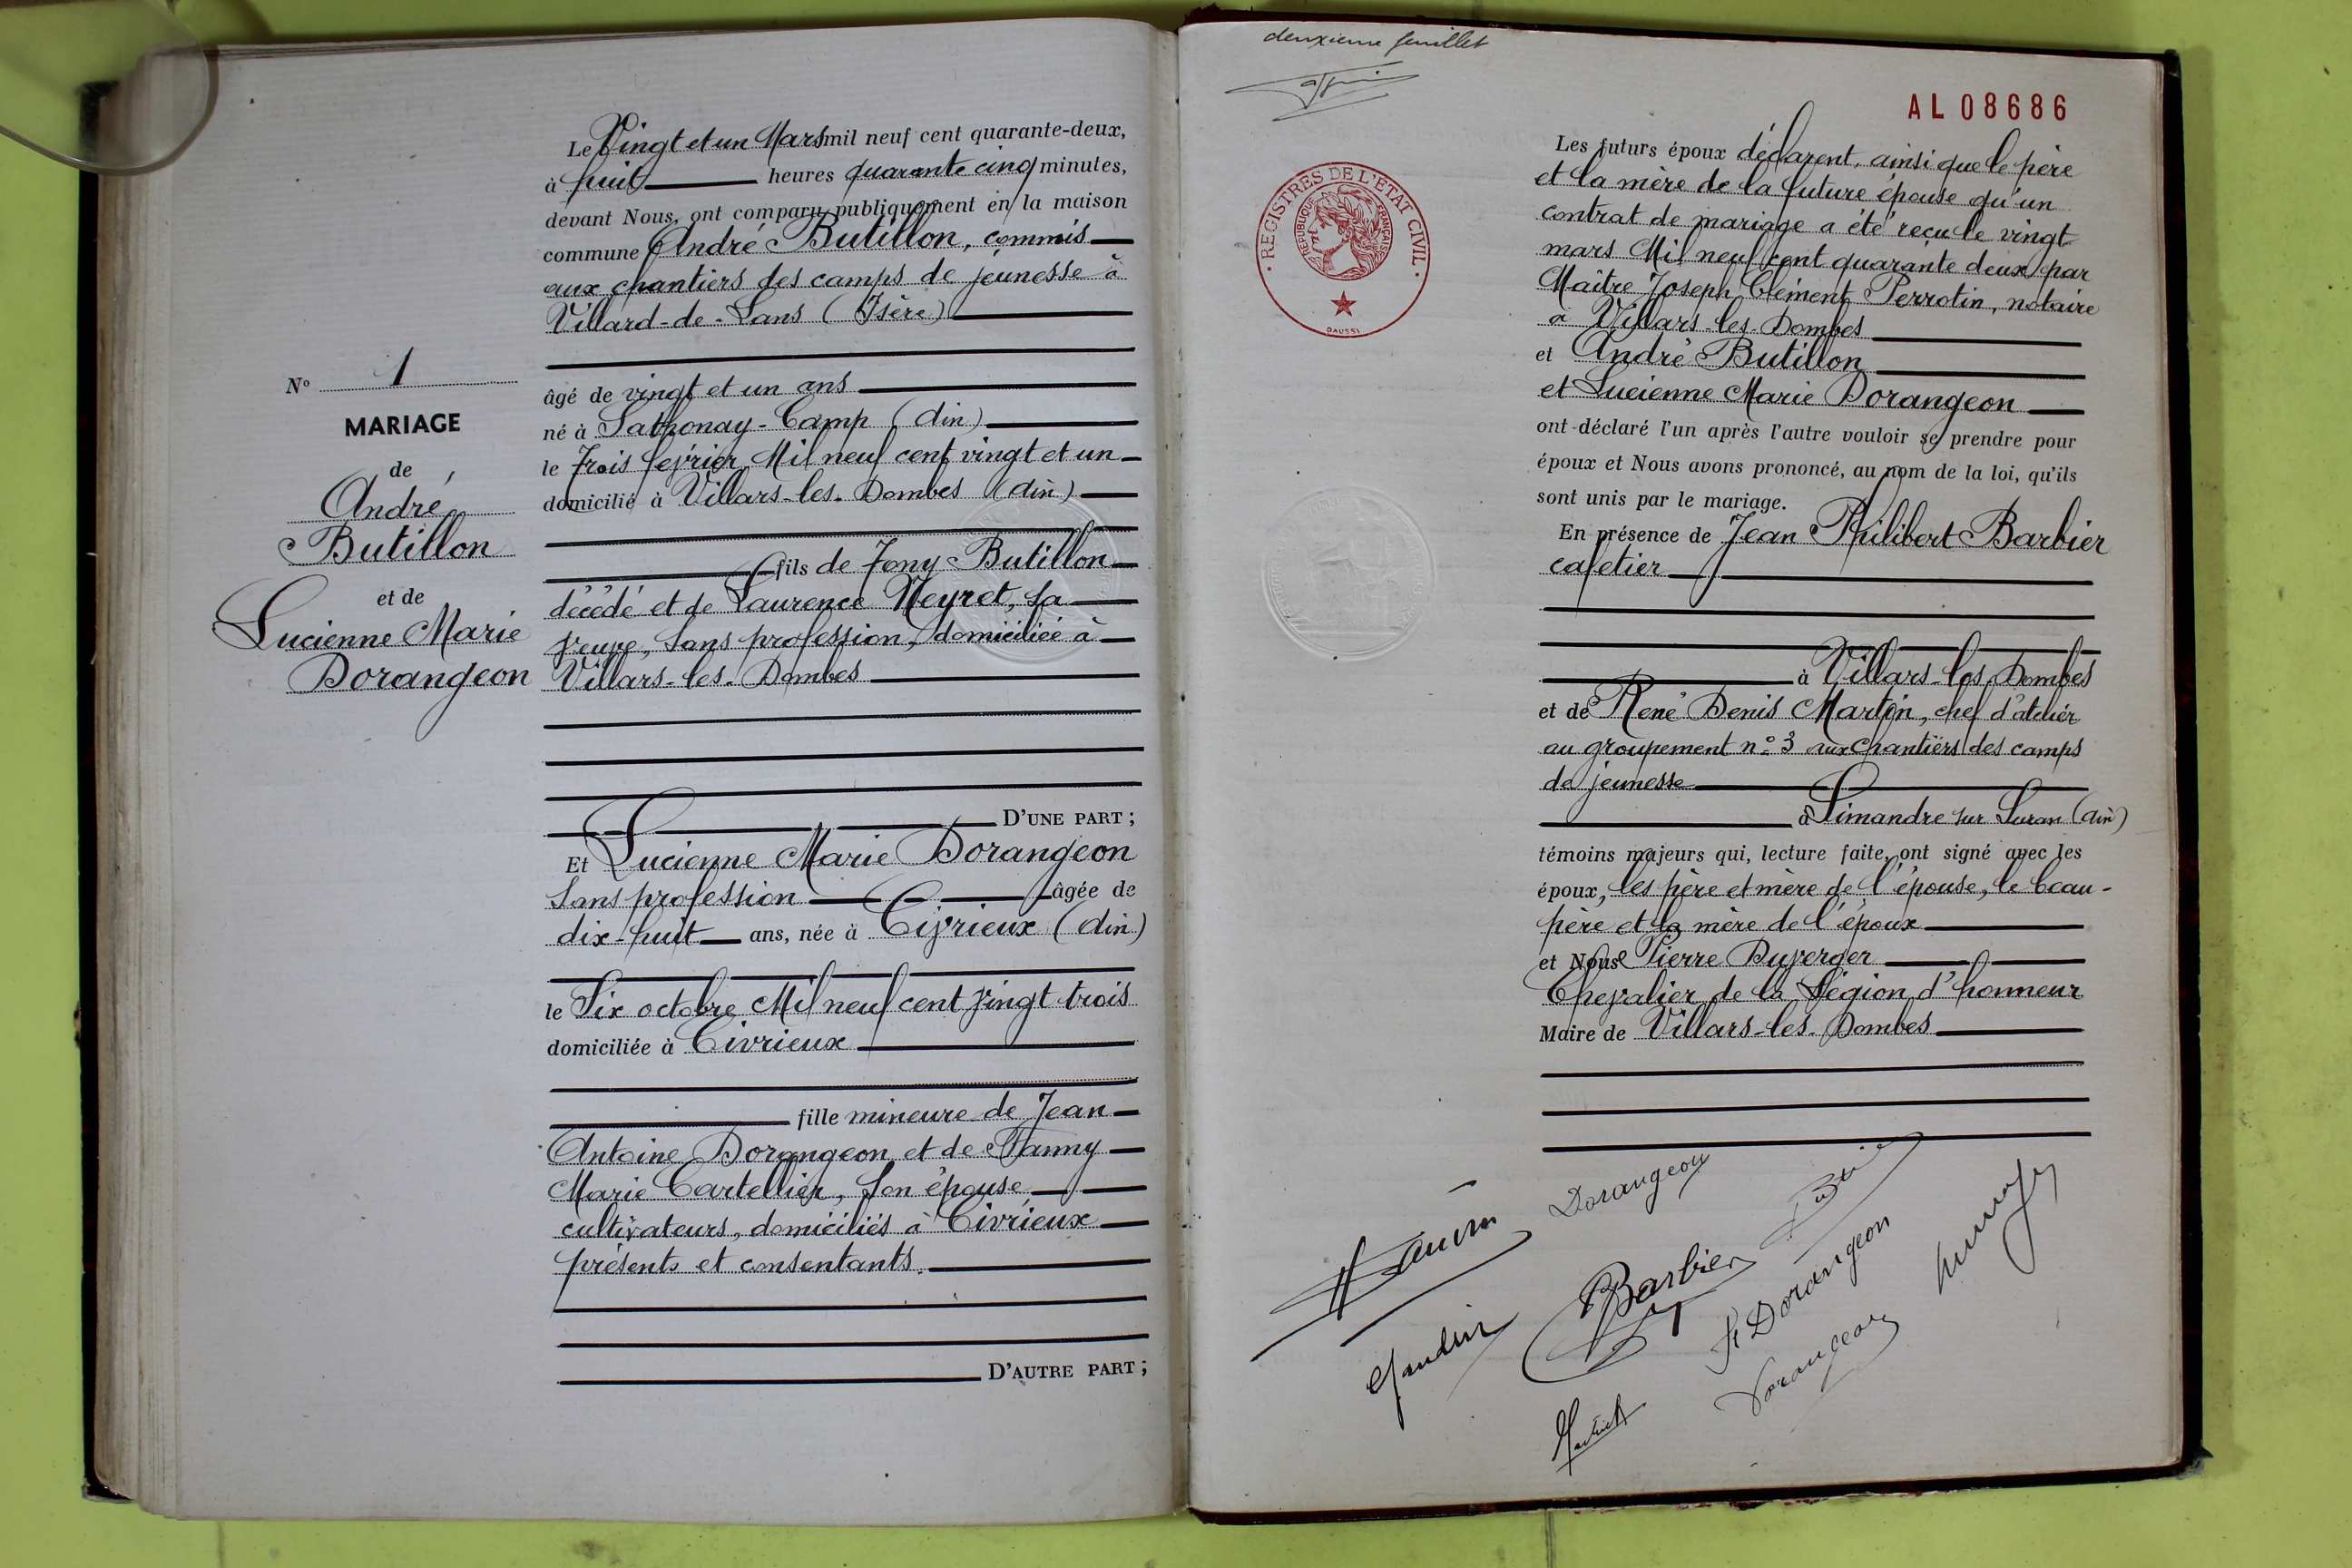 N° 1
MARIAGE
de
André
Butillon
et de
Lucienne Marie
Dorangeon
Le Vingt et un Mars mil neuf cent quarante-deux,
à huit heures quarante cinq minutes,
devant Nous, ont comparu publiquement en la maison
commune André Butillon, commis
aux chantiers des camps de jeunesse à
Villard-de-Lans (Isère)
âgé de vingt et un ans
né à Sathonay-Camp (Ain)
le Trois février Mil neuf cent vingt et un
domicilié à Villars-les-Dombes (Ain)
fils de Tony Butillon
décédé et de Laurence Neyret, sa
veuve, sans profession, domiciliée à
Villars-les-Dombes
D'UNE PART ;
Et Lucienne Marie Dorangeon
sans profession âgée de
dix-huit ans, née à Civrieux (Ain)
le Six octobre Mil neuf cent vingt trois
domiciliée à Civrieux
fille mineure de Jean
Antoine Dorangeon et de Fanny
Marie Cartellier, son épouse
cultivateurs, domiciliés à Civrieux
présents et consentants.
D'AUTRE PART ;
deuxième feuillet
AL 08686
REGISTRES DE L'ETAT CIVIL
REPUBLIQUE FRANÇAISE
DAUSSI
Les futurs époux déclarent, ainsi que le père
et la mère de la future épouse qu'un
contrat de mariage a été reçu le vingt
mars Mil neuf cent quarante deux par
Maître Joseph Clément Perrotin, notaire
à Villars-les-Dombes
et André Butillon
et Lucienne Marie Dorangeon
ont déclaré l'un après l'autre vouloir se prendre pour
époux et Nous avons prononcé, au nom de la loi, qu'ils
sont unis par le mariage.
En présence de Jean Philibert Barbier
cafetier
à Villars-les-Dombes
et de René Denis Martin, chef d'atelier
au groupement n° 3 aux chantiers des camps
de jeunesse
à Simandre sur Suran (Ain)
témoins majeurs qui, lecture faite, ont signé avec les
époux, les père et mère de l'épouse, le beau-
père et la mère de l'époux
et Nous Pierre Duverger
Chevalier de la Légion d'honneur
Maire de Villars-les-Dombes
Dorangeon
Barbier
F. Dorangeon
Dorangeon